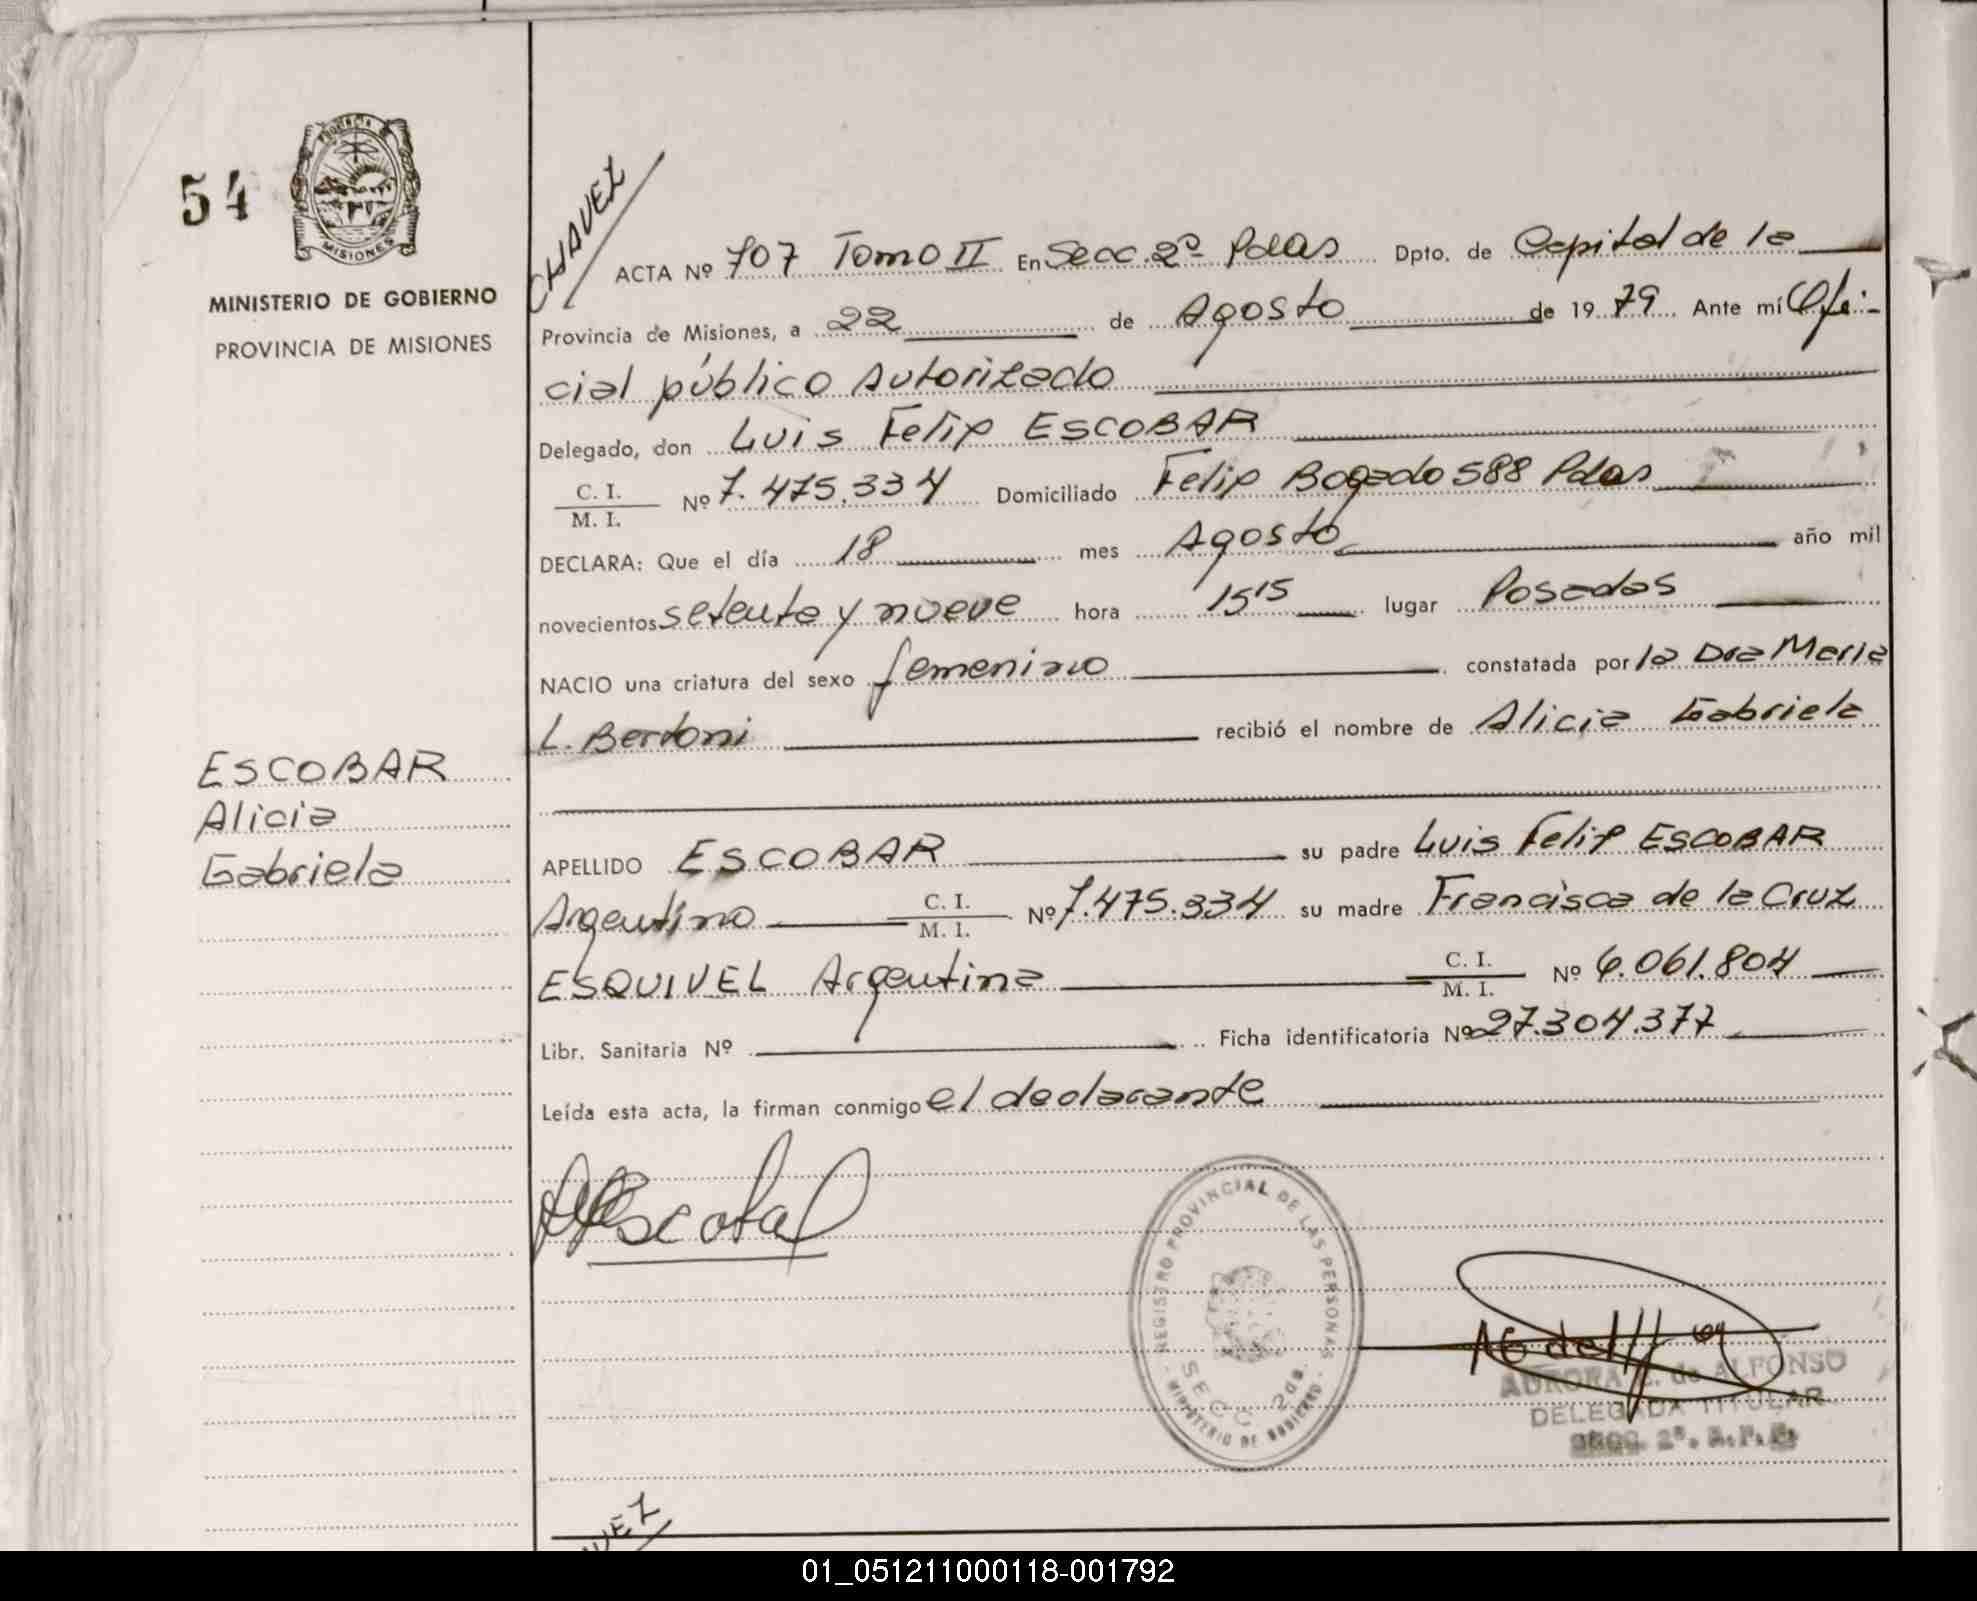 54
PROVINCIA DE
MISIONES
MINISTERIO DE GOBIERNO
PROVINCIA DE MISIONES
CHAVEZ
ACTA Nº 707 Tomo II En Secc. 2º Pdas Dpto. de Capital de la
Provincia de Misiones, a 22 de Agosto de 1979. Ante mí Ofi-
cial público Autorizado
Delegado, don Luis Felip ESCOBAR
C. I.
M. I. Nº 7.475.334 Domiciliado Felip Bogado 588 Pdas
DECLARA: Que el día 18 mes Agosto año mil
novecientos setenta y nueve hora 15 15 lugar Posadas
NACIO una criatura del sexo femenino constatada por la Dra Maria
L. Bertoni recibió el nombre de Alicia Gabriela
ESCOBAR
Alicia
Gabriela
APELLIDO ESCOBAR su padre Luis Felip ESCOBAR
Argentino C. I.
M. I. Nº 7.475.334 su madre Francisca de la Cruz
ESQUIVEL Argentina C. I.
M. I. Nº 6.061.804
Libr. Sanitaria Nº Ficha identificatoria Nº 27.304.377
Leída esta acta, la firman conmigo el declarante
REGISTRO PROVINCIAL DE LAS PERSONAS
SECC. 2da.
MINISTERIO DE GOBIERNO
AURORA E. de ALFONSO
DELEGADA TITULAR
SECC. 2ª. R. P. P.
01_051211000118-001792